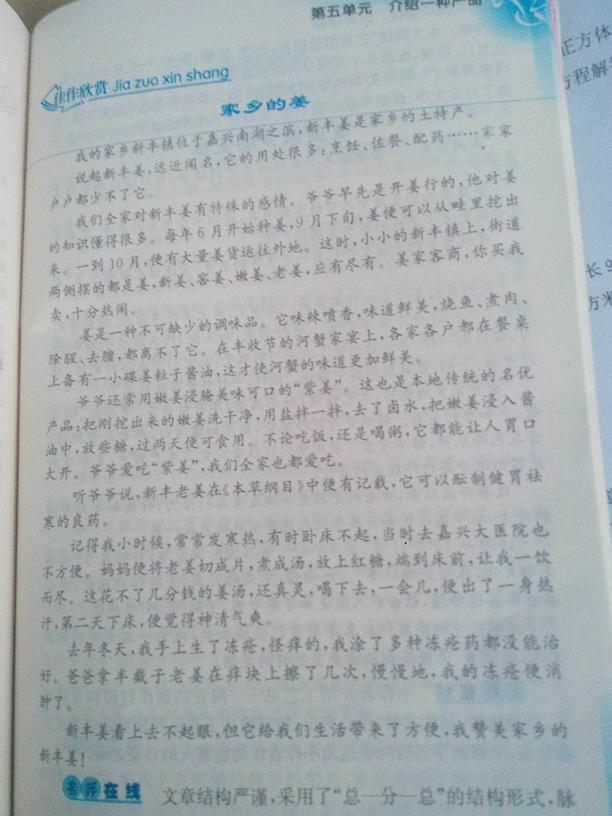 第五单元 介绍一种产品
佳作欣赏 Jia zuo xin shang
家乡的姜
我的家乡新丰镇位于嘉兴南湖之滨,新丰姜是家乡的土特产。
说起新丰姜,远近闻名,它的用处很多:烹饪、佐餐、配药……家家
户户都少不了它。
我们全家对新丰姜有特殊的感情。爷爷早先是开姜行的,他对姜
的知识懂得很多。每年6月开始种姜,9月下旬,姜便可以从畦里挖出
来。一到10月,便有大量姜货运往外地。这时,小小的新丰镇上,街道
两侧摆的都是姜,新姜、客姜、嫩姜、老姜,应有尽有。姜家客商,你买我
卖,十分热闹。
姜是一种不可缺少的调味品。它味辣喷香,味道鲜美,烧鱼、煮肉、
除腥、去膻,都离不了它。在丰收节的河蟹家宴上,各家各户都在餐桌
上备有一小碟姜粒子酱油,这才使河蟹的味道更加鲜美。
爷爷还常用嫩姜浸腌美味可口的“紫姜”。这也是本地传统的名优
产品:把刚挖出来的嫩姜洗干净,用盐拌一拌,去了卤水,把嫩姜浸入酱
油中,放些糖,过两天便可食用。不论吃饭,还是喝粥,它都能让人胃口
大开。爷爷爱吃“紫姜”,我们全家也都爱吃。
听爷爷说,新丰老姜在《本草纲目》中便有记载,它可以酝制健胃祛
寒的良药。
记得我小时候,常常发寒热,有时卧床不起,当时去嘉兴大医院也
不方便。妈妈便将老姜切成片,煮成汤,放上红糖,端到床前,让我一饮
而尽。这花不了几分钱的姜汤,还真灵,喝下去,一会儿,便出了一身热
汗,第二天下床,便觉得神清气爽。
去年冬天,我手上生了冻疮,怪痒的,我涂了多种冻疮药都没能治
好。爸爸拿半截子老姜在痒块上擦了几次,慢慢地,我的冻疮便消
肿了。
新丰姜看上去不起眼,但它给我们生活带来了方便,我赞美家乡的
新丰姜!
名师在线 文章结构严谨,采用了“总—分—总”的结构形式,脉
正方体
方程解
长9
方米